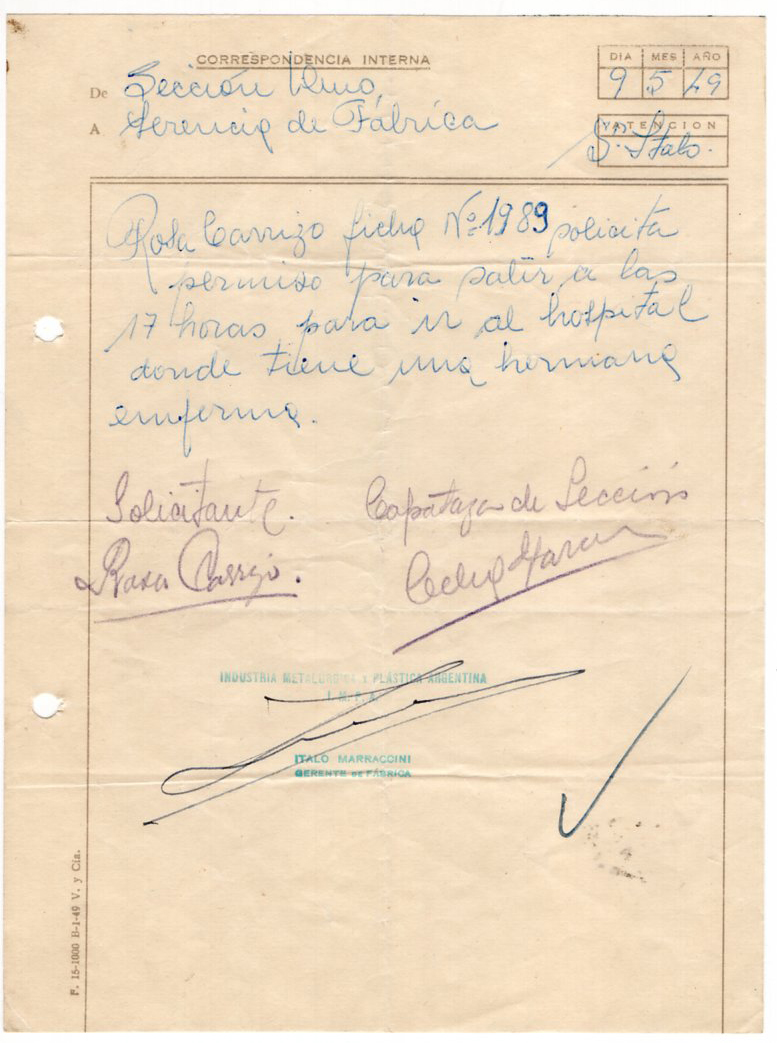 CORRESPONDENCIA INTERNA
DIA MES AÑO
9 5 49
De Sección Uno,
A Gerencia de Fábrica
ATENCION
Sr. Italo.
Rosa Carrizo ficha Nº 1989 solicita
permiso para salir a las
17 horas para ir al hospital
donde tiene una hermana
enferma.
Solicitante. Capataza de Sección
Rosa Carrizo.
INDUSTRIA METALURGICA y PLÁSTICA ARGENTINA
I. M. P. A.
ITALO MARRACCINI
GERENTE DE FÁBRICA
F. 15-1000 B-1-49 V. y Cía.